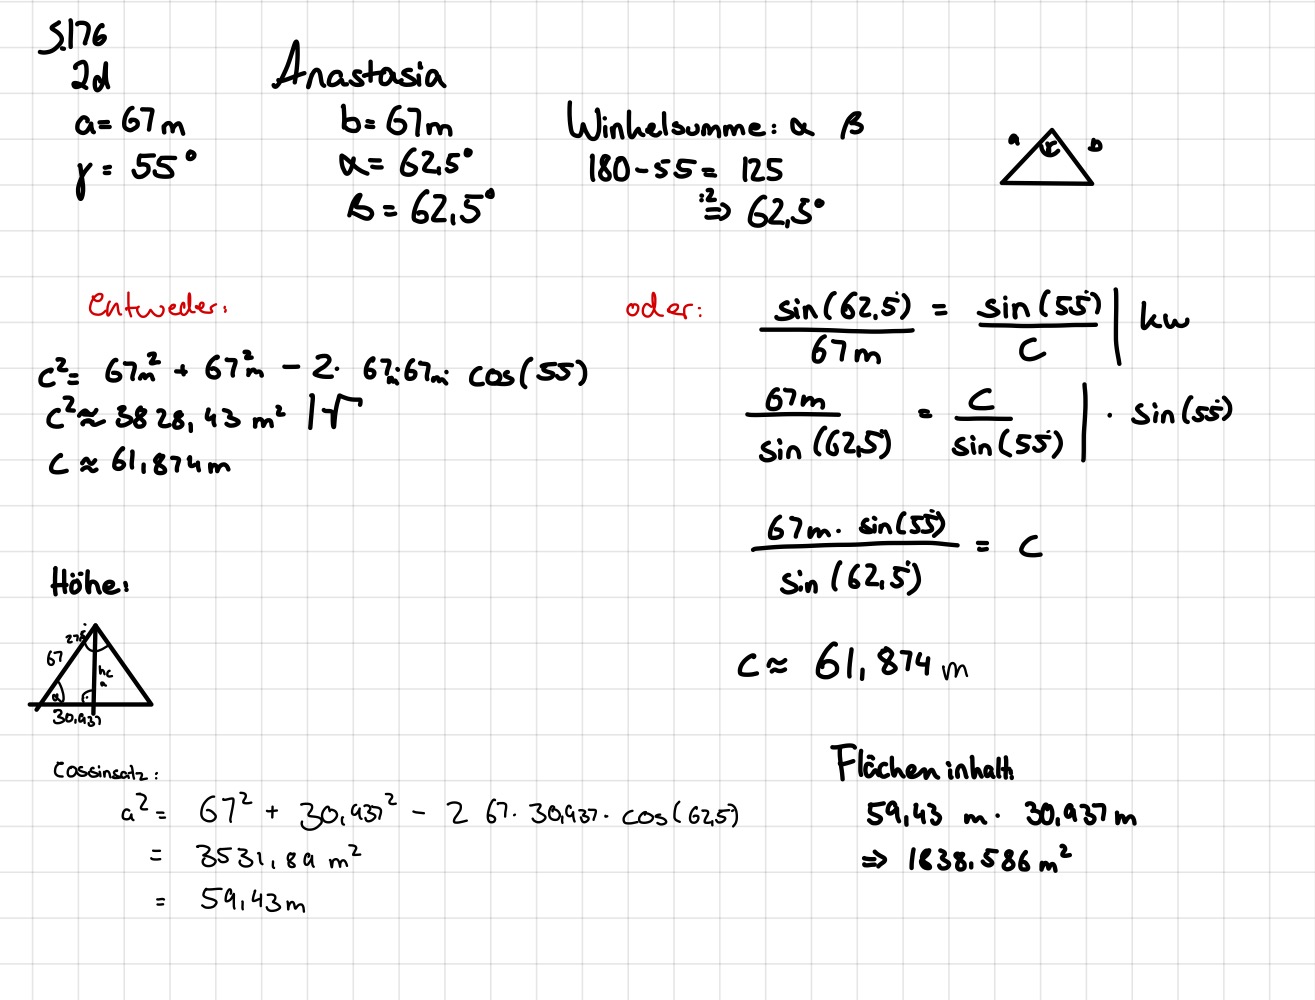 S.176
2d
Anastasia
a= 67m
γ= 55°
b= 67m
α= 62,5°
β= 62,5°
Winkelsumme: α β
180-55= 125
:2
=> 62,5°
a γ b
Entweder:
c²= 67m² + 67m² - 2· 67m·67m· cos(55)
c²≈ 3828,43 m² |√
c ≈ 61,874m
oder:
sin(62,5°)/67m = sin(55°)/c | kw
67m/sin(62,5°) = c/sin(55°) | · sin(55°)
67m· sin(55°)/sin(62,5°) = c
c≈ 61,874 m
Höhe:
27,5
67
hc
a
α
30,937
Cossinsatz:
a²= 67² + 30,937² - 2 67· 30,937· cos(62,5)
= 3531,89 m²
= 59,43m
Flächeninhalt:
59,43 m· 30,937m
=> 1838.586m²